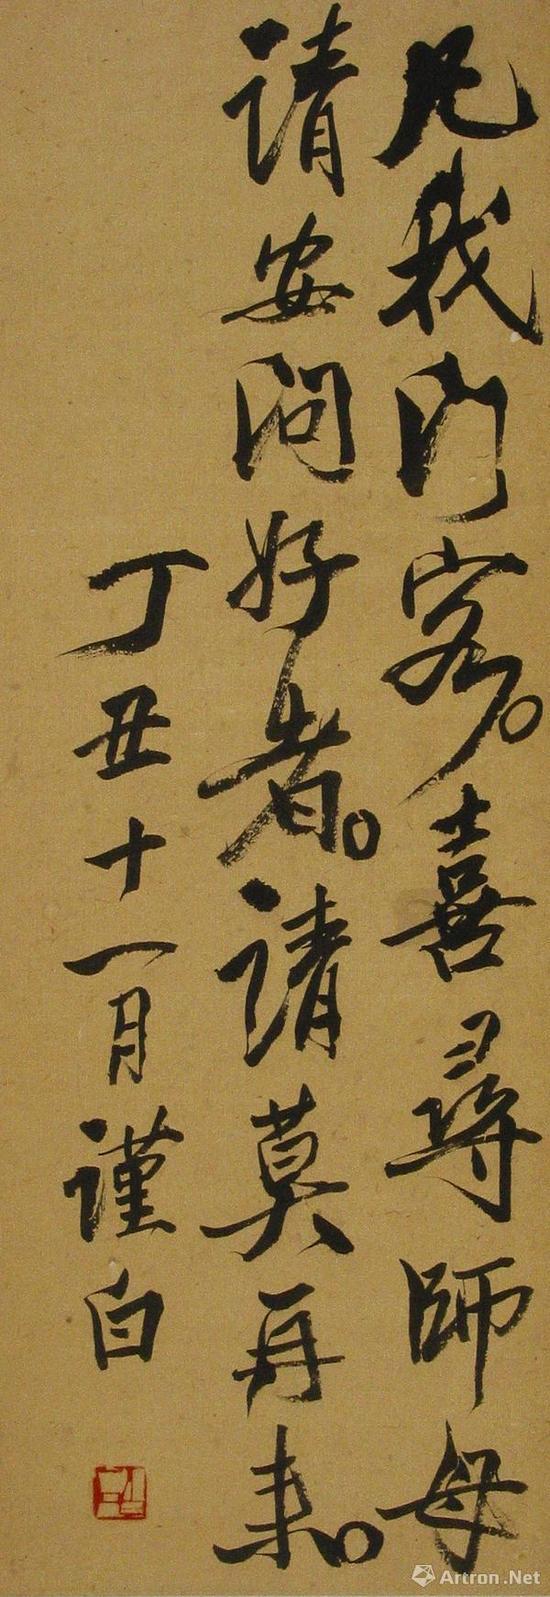 凡我门客。喜尋師母
请安问好者。请莫再来。
丁丑十一月謹白
Artron.Net